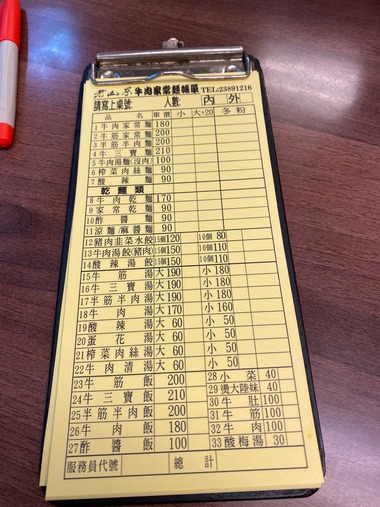 老山東牛肉家常麵帳單 TEL:23891216
請寫上桌號: 人數: 內 外
品名 單價 小 大+20 冬粉
1 牛肉家常麵 180
2 牛筋家常麵 200
3 半筋半肉麵 200
4 牛三寶麵 210
5 牛肉湯麵(沒肉) 100
6 榨菜肉絲麵 90
7 酸辣麵 90
乾麵類
8 牛肉乾麵 170
9 家常乾麵 90
10 酢醬麵 90
11 涼麵/麻醬麵 90
12 豬肉韭菜水餃 15個120 10個 80
13 牛肉湯餃(豬肉) 15個150 10個110
14 酸辣湯餃 15個150 10個110
15 牛筋湯 大190 小180
16 牛三寶湯 大190 小180
17 半筋半肉湯 大190 小180
18 牛肉湯 大170 小160
19 酸辣湯 大 60 小 50
20 蛋花湯 大 60 小 50
21 榨菜肉絲湯 大 60 小 50
22 牛肉清湯 大 60 小 50
23 牛筋飯 200 28 小菜 40
24 牛三寶飯 210 29 燙大陸妹 40
25 半筋半肉飯 200 30 牛肚 100
26 牛肉飯 180 31 牛筋 100
27 酢醬飯 100 32 牛肉 100
33 酸梅湯 30
服務員代號 總計